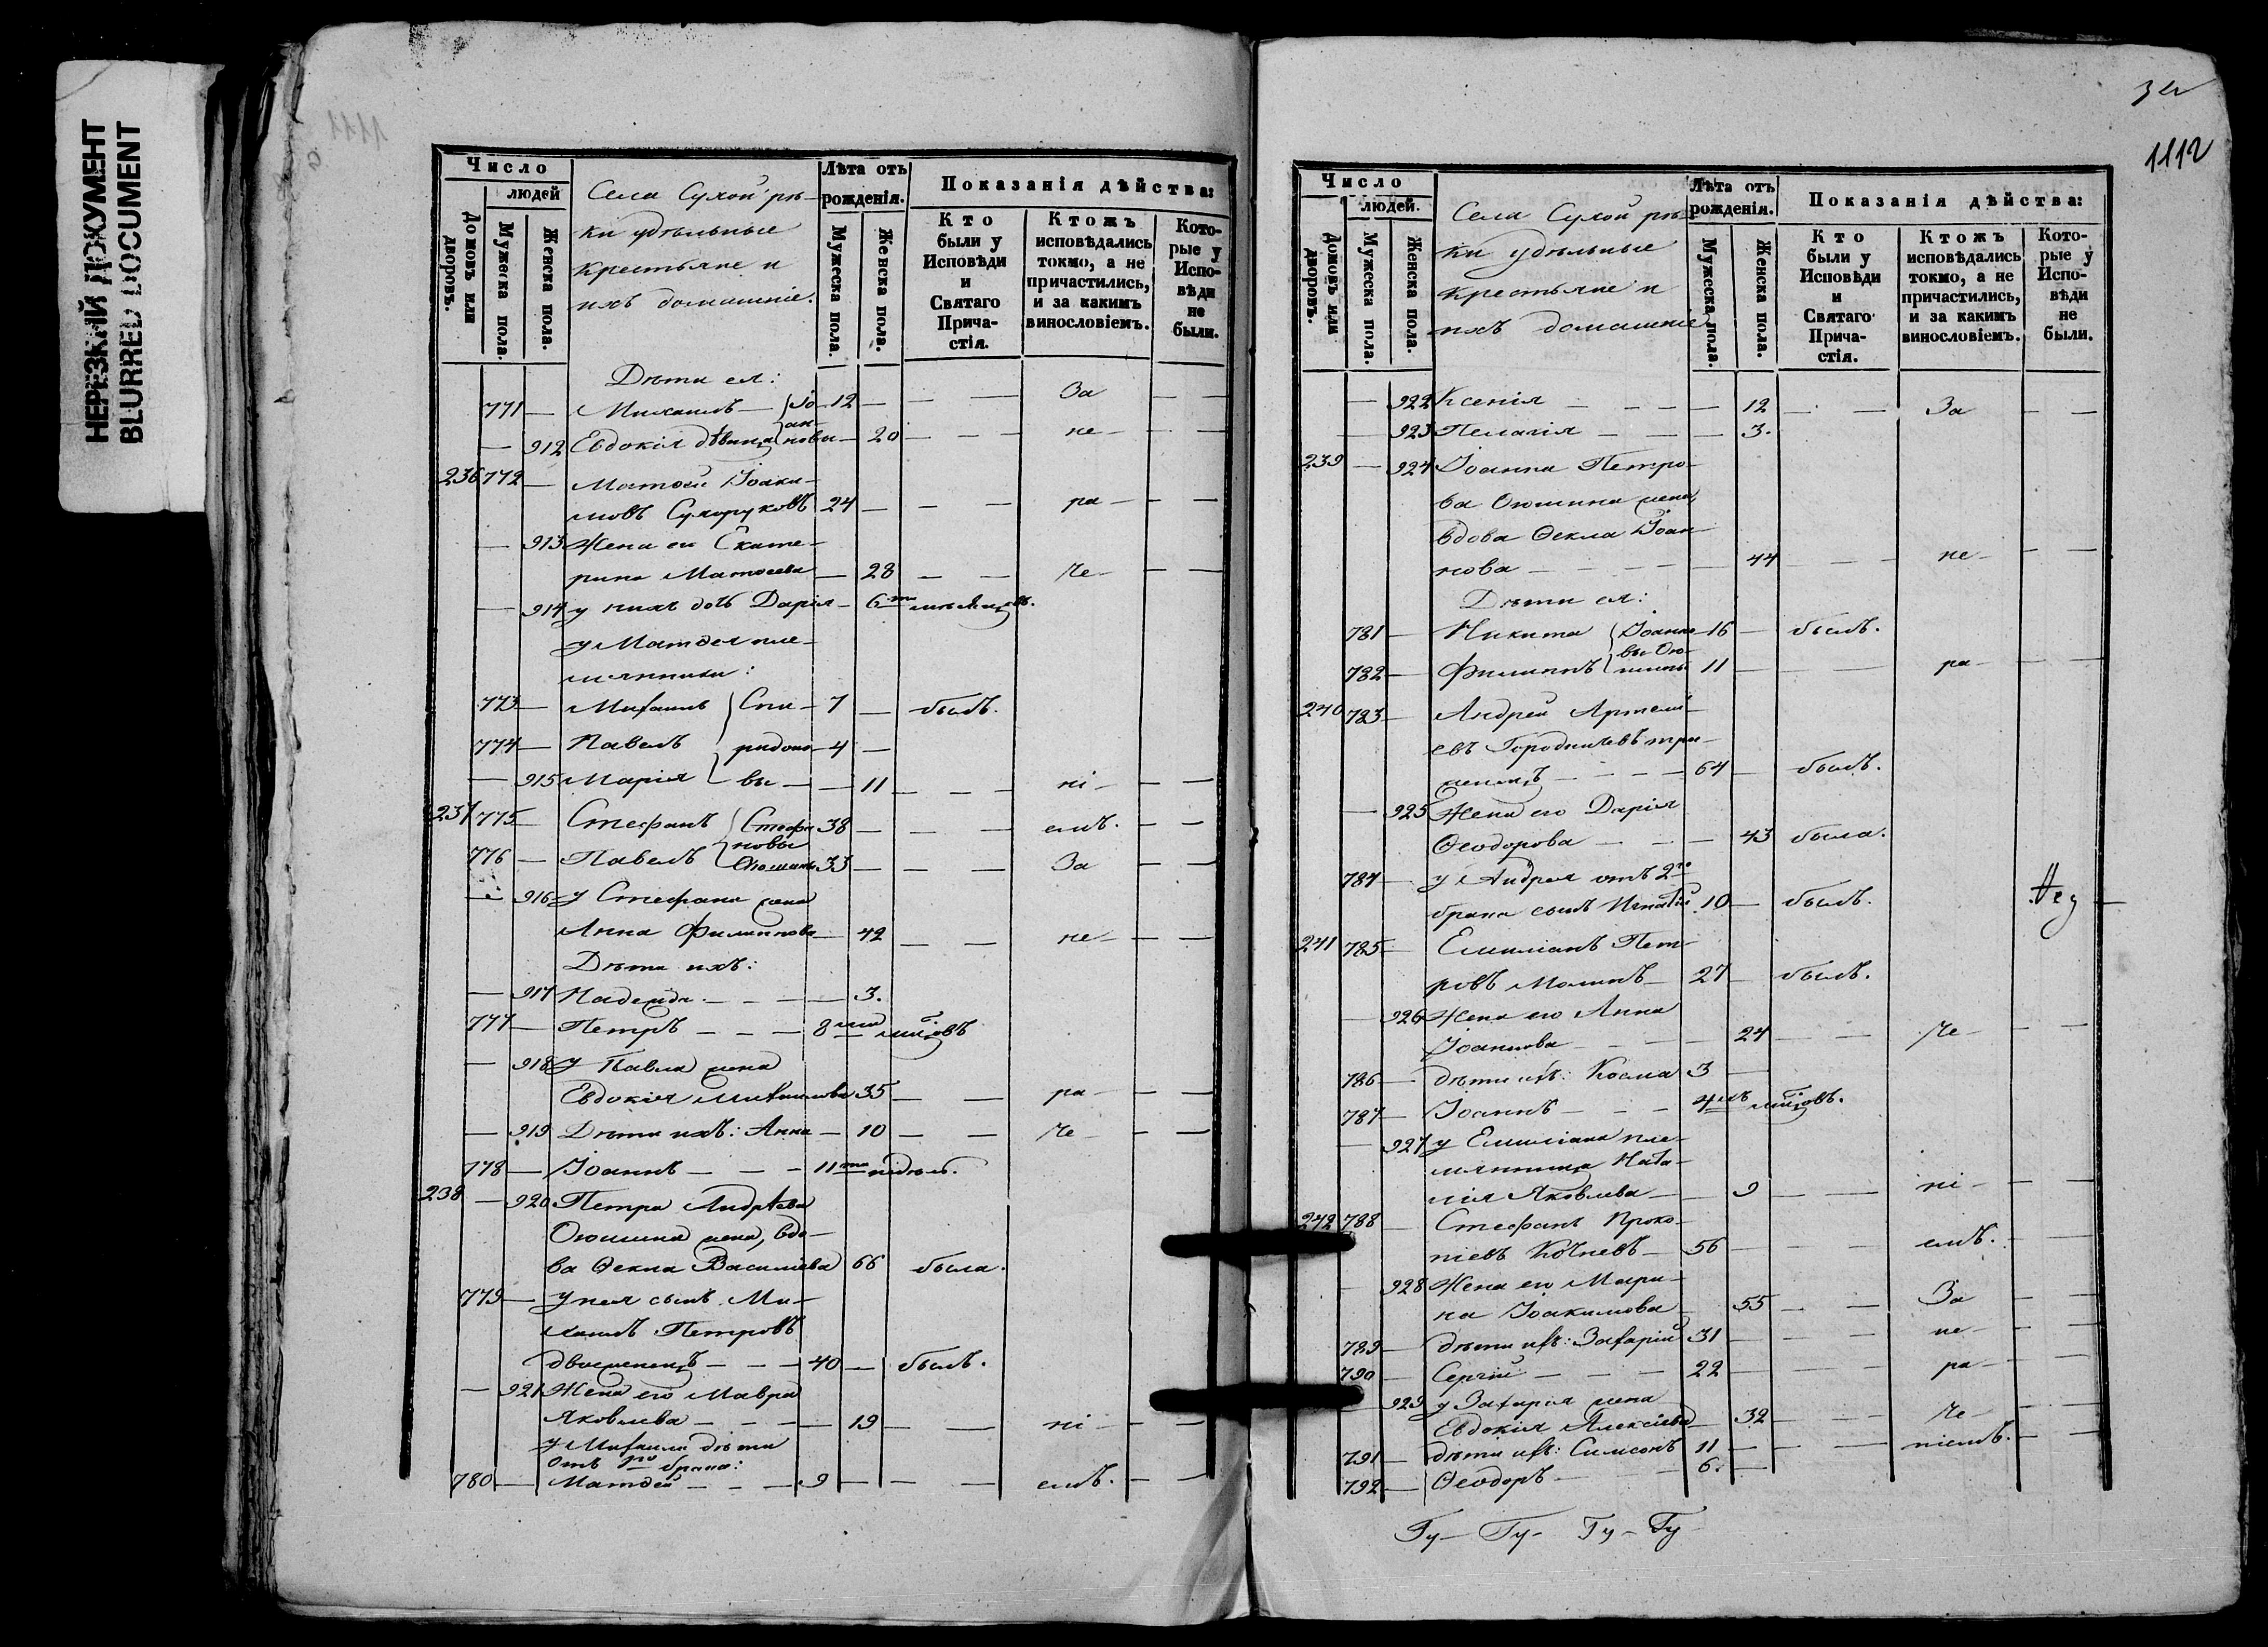 НЕРЕЗКИЙ ДОКУМЕНТ
BLURRED DOCUMENT
1111
Число
людей
Домовъ или дворовъ.
Мужеска пола.
Женска пола.
Села Сухой рѣ-
ки удѣльные
крестьяне и
ихъ домашніе.
Лѣта отъ рожденія.
Мужеска пола.
Женска пола.
Показанія дѣйства:
Кто были у Исповѣди и Святаго Прича-стія.
Ктожъ исповѣдались токмо, а не причастились, и за какимъ винословіемъ.
Кото-рые у Испо-вѣди не были.
Дѣти ея:
771 — Михаилъ — Іо- 12 — — — За — —
— 912 Евдокія дѣвица ан-новы — 20 — — не — —
236 772 — Матѳей Іоаки-
мовъ Сухоруковъ 24 — — — ра — — —
— 913 Жена его Екате-
рина Матѳеева — 28 — — Че — — —
— 914 у нихъ дочь Дарія — 6ти мѣсяцовъ.
у Матѳея пле-
мянники:
773 — Михаилъ Спи- 7 — былъ.
774 — Павелъ ридоно- 4 —
— 915 Марія вы — — 11 — — — ні — — —
237 775 — Стефанъ Стефа 38 — — — емъ. — —
новы
776 — Павелъ Оюшины 33 — — — За — —
— 916 у Стефана жена
Анна Филиппова — 42 — — не — — —
Дѣти ихъ:
— 917 Надежда — — — 3.
777 — Петръ — — — 8ми мѣцовъ
— 918 у Павла жена
Евдокія Михаилова 35 — — ра — — —
— 919 Дѣти ихъ: Анна — 10 — — Че — — —
778 — Іоаннъ — — — 11ти недѣль.
238 — 920 Петра Андрѣева
Оюшина жена, вдо-
ва Ѳекла Василіева 66 была.
779 — у нея сынъ Ми-
хаилъ Петровъ
двоеженецъ — — — 40 — былъ.
— 921 Жена его Мавра
Яковлева — — — 19 — — ні — — —
у Михаила дѣти
отъ 1го брака:
780 — Матѳей — — — 9 — — — емъ. — —
1112
Число
людей.
Домовъ или дворовъ.
Мужеска пола.
Женска пола.
Села Сухой рѣ-
ки удѣльные
крестьяне и
ихъ домашніе
Лѣта отъ рожденія.
Мужеска пола.
Женска пола.
Показанія дѣйства:
Кто были у Исповѣди и Святаго Прича-стія.
Ктожъ исповѣдались токмо, а не причастились, и за какимъ винословіемъ.
Кото-рые у Испо-вѣди не были.
— 922 Ксенія — — — — 12 — — За — —
— 923 Пелагія — — — — 3.
239 — 924 Іоанна Петро-
ва Оюшина жена,
вдова Ѳекла Іоан-
нова — — — — — 44 — — — не — — —
Дѣти ея:
781 — Никита Іоанно- 16 — былъ.
вы Ою-
782 — Филиппъ шины 11 — — — ра — — —
240 783 — Андрей Артемі-
евъ Городничевъ трое-
женецъ — — — — 64 — былъ.
— 925 Жена его Дарія
Ѳеодорова — — — 43 была.
784 — у Андрея отъ 2го
брака сынъ Игнатій 10 — былъ.
241 785 — Емиліанъ Пет-
ровъ Молинъ — 27 — былъ.
— 926 Жена его Анна
Іоаннова — — — — 24 — — Че — — —
786 — дѣти ихъ: Косма 3 —
787 — Іоаннъ — — — 4хъ мѣцовъ.
— 927 у Емиліана пле-
мянница Ната-
лія Яковлева — — 9 — — ні — — —
242 788 — Стефанъ Проко-
піевъ Кочневъ — 56 — — — емъ. — —
— 928 Жена его Мари-
на Іоакимова — 55 — — За — —
789 — дѣти ихъ: Захарій 31 — — не — — —
790 — Сергій — — — 22 — — — ра — — —
— 929 у Захарія жена
Евдокія Алексіева — 32 — — — Че — — —
791 — дѣти ихъ: Симеонъ 11 — — — ніемъ. — —
792 — Ѳеодоръ — — 6. —
Гу — Гу — Гу — Гу